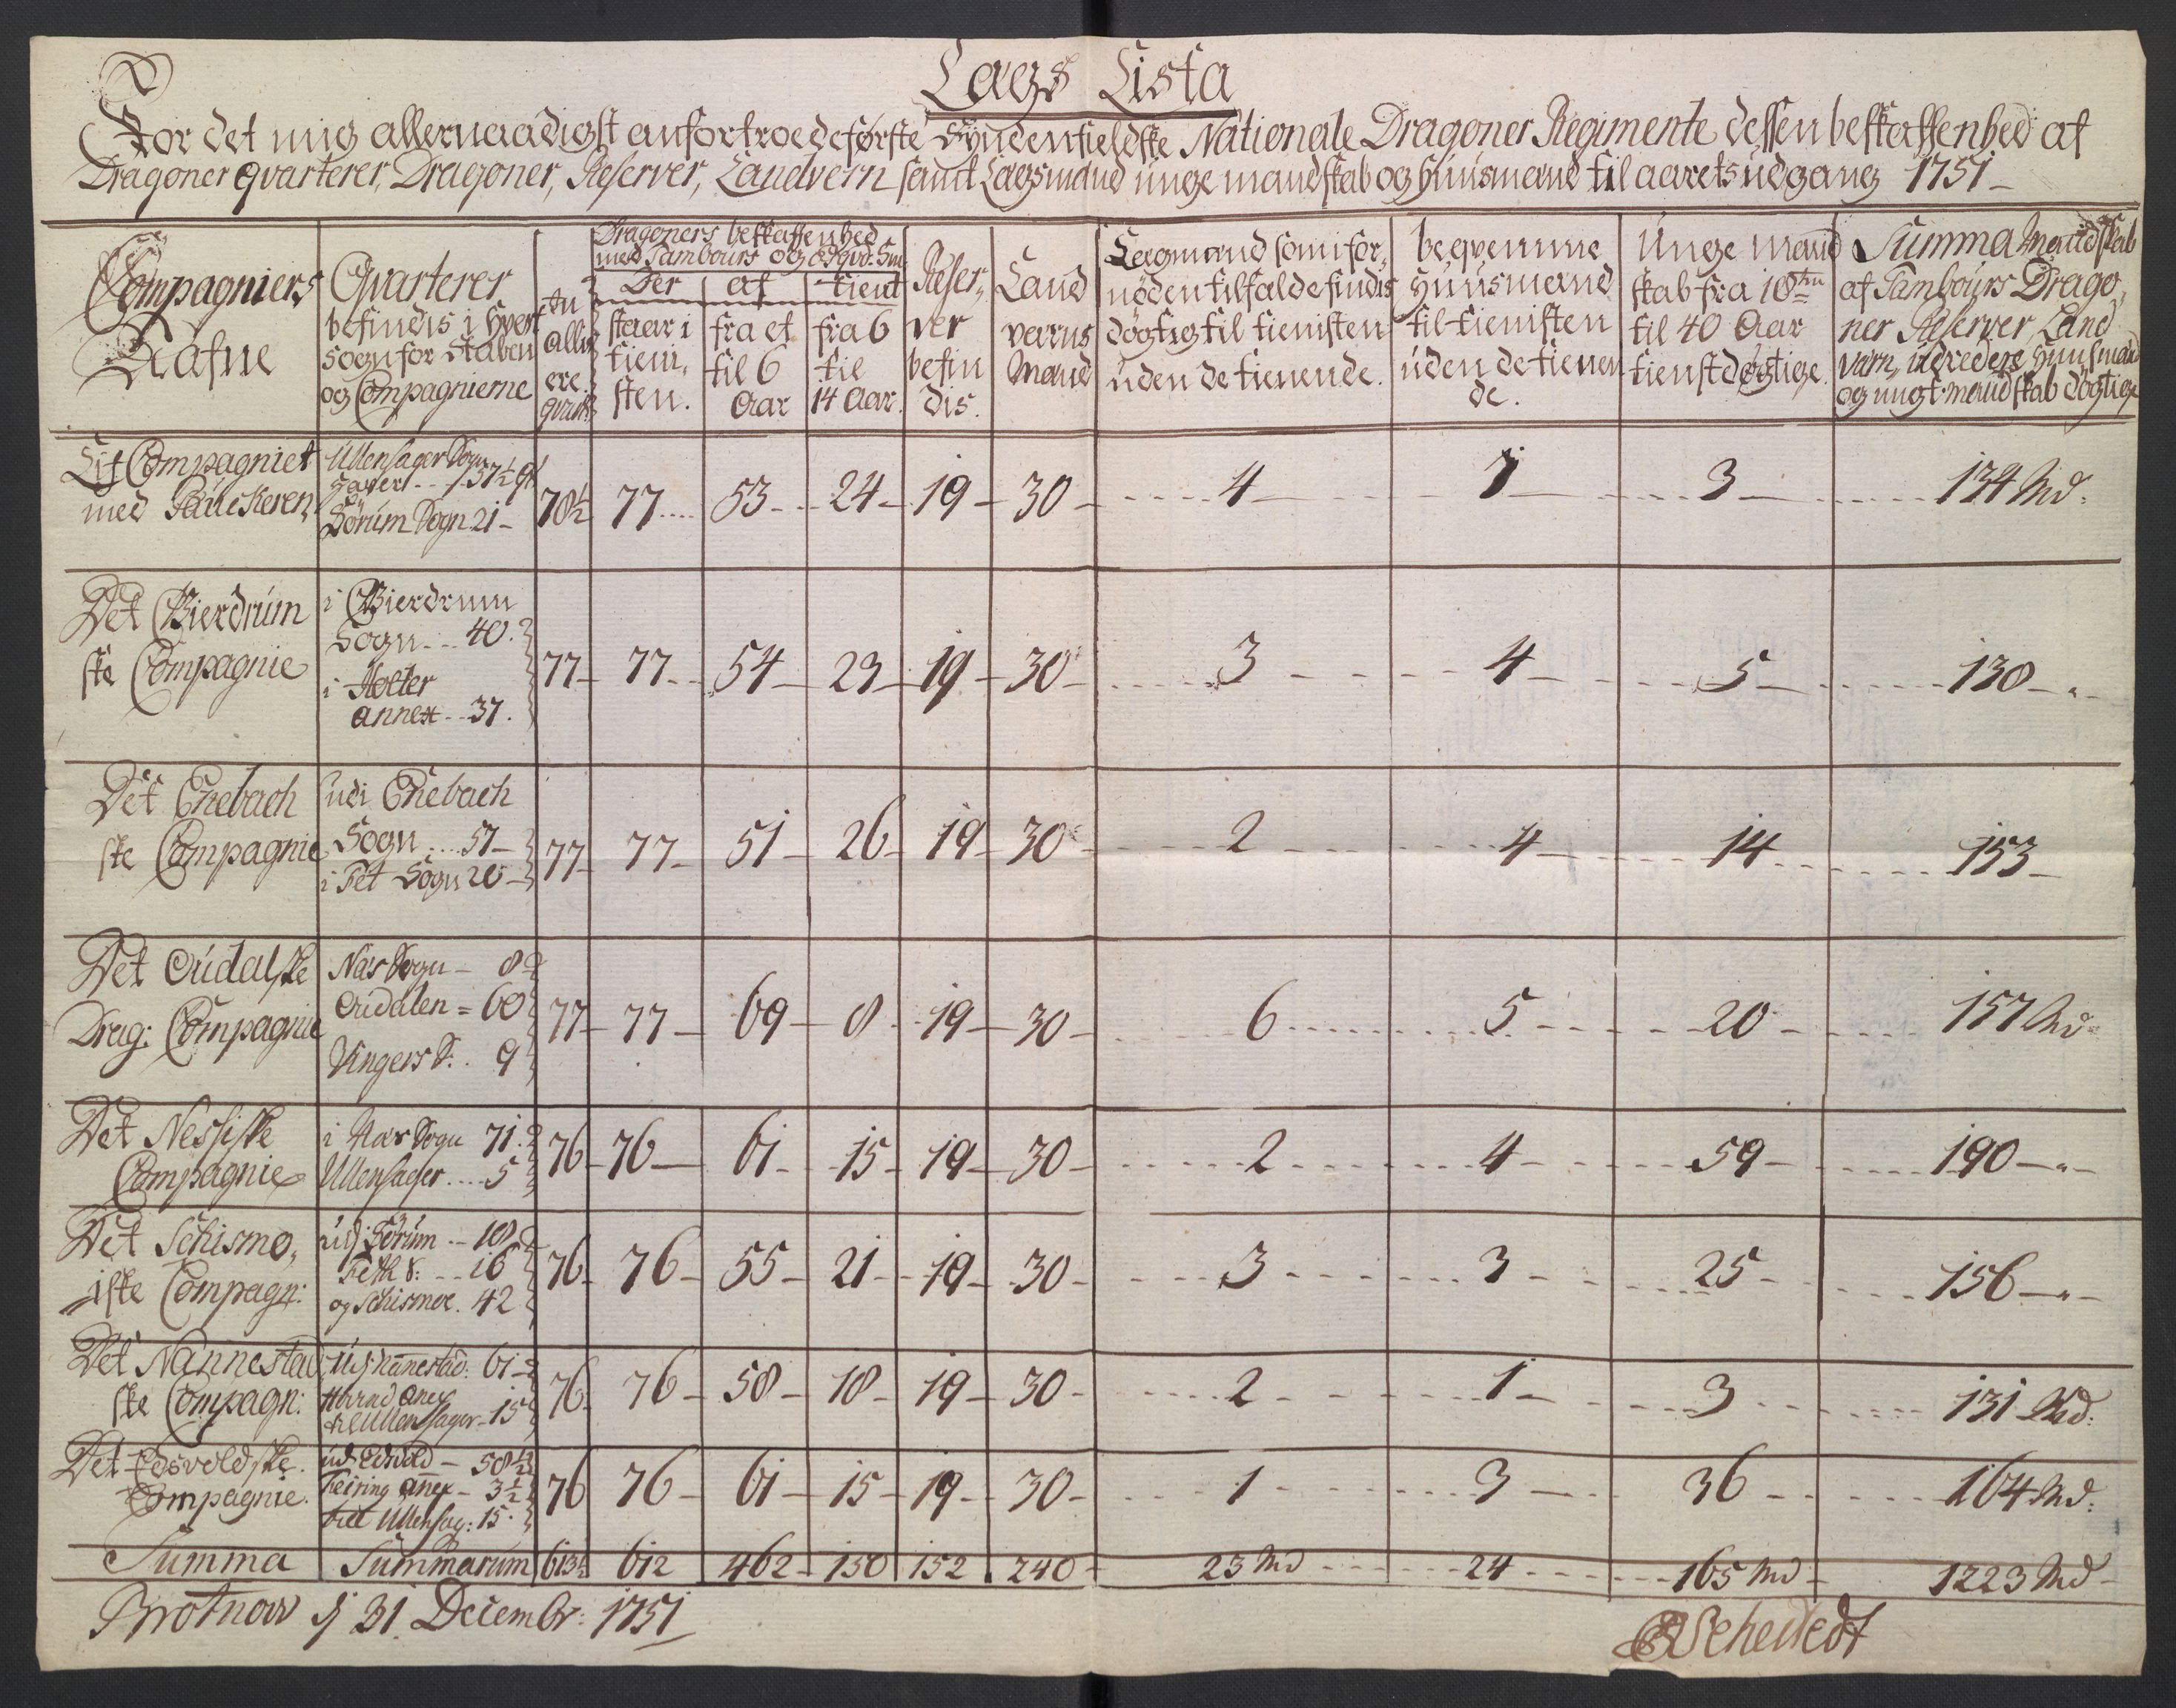 Lægs Lista
For det mig allernaadigst anfortroede første Syndenfieldske Nationale Dragoner Regimente dessen beskaffenhed af
Dragoner qvarterer, Dragoner, Reserver, Landvern samt Lægsmænd unge mandskab og Huusmænd til aarets udgang 1751
Compagniers Nafne
Qvarterer befindis i hvert sogn for Staben og Compagnierne
Dragoners beskaffenhed
Der staar i tienisten.
af fra et til 6 Aar
tient fra 6 til 14 Aar.
Reserver befindis.
Land værns Mænd
Lægmænd som i fornøden tilfalde findis døgtig til tienisten uden de tienende.
beqvemme Huusmænd til tienisten uden de tienende.
Unge Mandskab fra 18 til 40 Aar tienstdøgtige.
Summa Mandskab af Tambours Dragoner Reserver, Land Værn, Huusmænd og ungt mandskab døgtige
Lif Compagniet
med Paucheren
Ullensager Sogn
57½
Sørum Sogn 21
78½ 77 53 24 19 30 4 7 3 134 Md:
Det Gierdrum
ske Compagnie
i Gierdrum
Sogn 40.
i Holter
annex 37.
77 77 54 23 19 30 3 4 5 130
Det Enebach
ske Compagnie
udi Enebach
Sogn 57
i Fet Sogn 20
77 77 51 26 19 30 2 4 14 153
Det Oudalske
Drag: Compagnie
Næs Sogn 8
Oudalen 60
Vingers S: 9
77 77 69 8 19 30 6 5 20 157 Md
Det Nessiske
Compagnie
i Næs Sogn 71.
Ullensager 5
76 76 61 15 19 30 2 4 59 190
Det Schismo,
iske Compagn:
udj Sørum 18
Feth S: 16
og Schismoe. 42
76 76 55 21 19 30 3 3 25 156
Det Nannestad
ske Compagn:
Udj Nanestad: 61
anex
Ullensager 15
76 76 58 18 19 30 2 1 3 131 Md:
Det Edsvoldske
Compagnie.
ud Edsvold 58½
Feiring anex 3½
Ullensag: 15.
76 76 61 15 19 30 1 3 36 164 Md:
Summa Summarum 613½ 612 462 150 152 240 23 Md 24 165 Md 1223 Md
Brotnow dj 31 Decembr: 1751